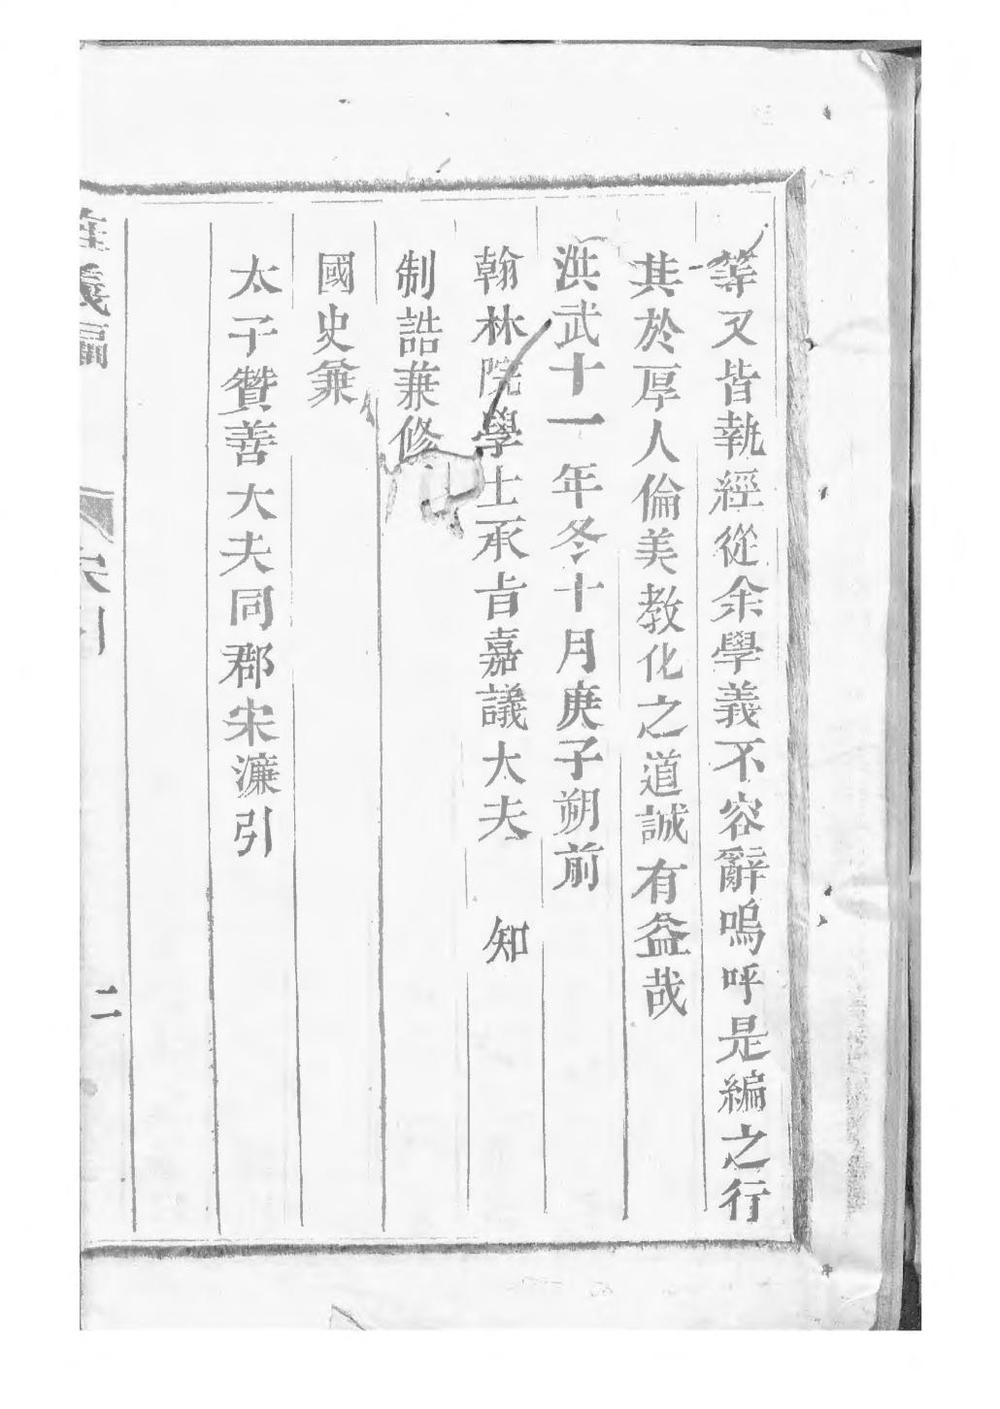 等又皆執經從余學義不容辭嗚呼是編之行
其於厚人倫美教化之道誠有益哉
洪武十一年冬十月庚子朔前
翰林院學士承旨嘉議大夫 知
制誥兼修
國史兼
太子贊善大夫同郡宋濂引
義編
宋引
二